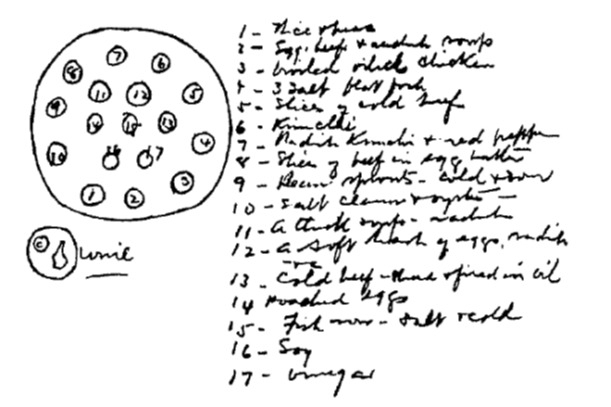 1 - Rice & beans
2 - Egg, beef & radish soup
3 - broiled chicken
4 - 3 salt
5 - Slices of cold beef
6 - Kimchi
7 - Radish Kimchi + red pepper
8 - Slices of beef in egg batter
9 - Bean sprouts - cold & sour
10 - Salt clams & oysters -
11 - A thick soup - radish
12 - A soft hash of eggs, radish
etc
13 - Cold beef - fried in oil
14 Poached eggs
15 - Fish roe - salt & cold
16 - Soy
17 - Vinegar
7
8 6
11 12 5
9
14 15 13
10 16 17 4
1 2 3
wine